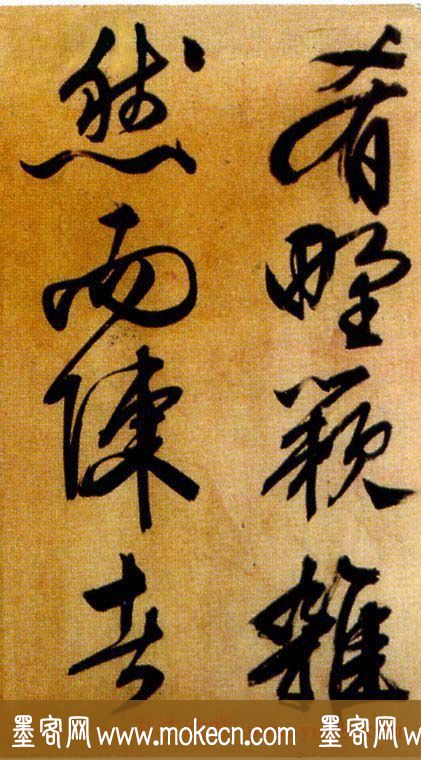 肴野蔌雜
然而陳者
墨客网 www.mokecn.com 墨客网